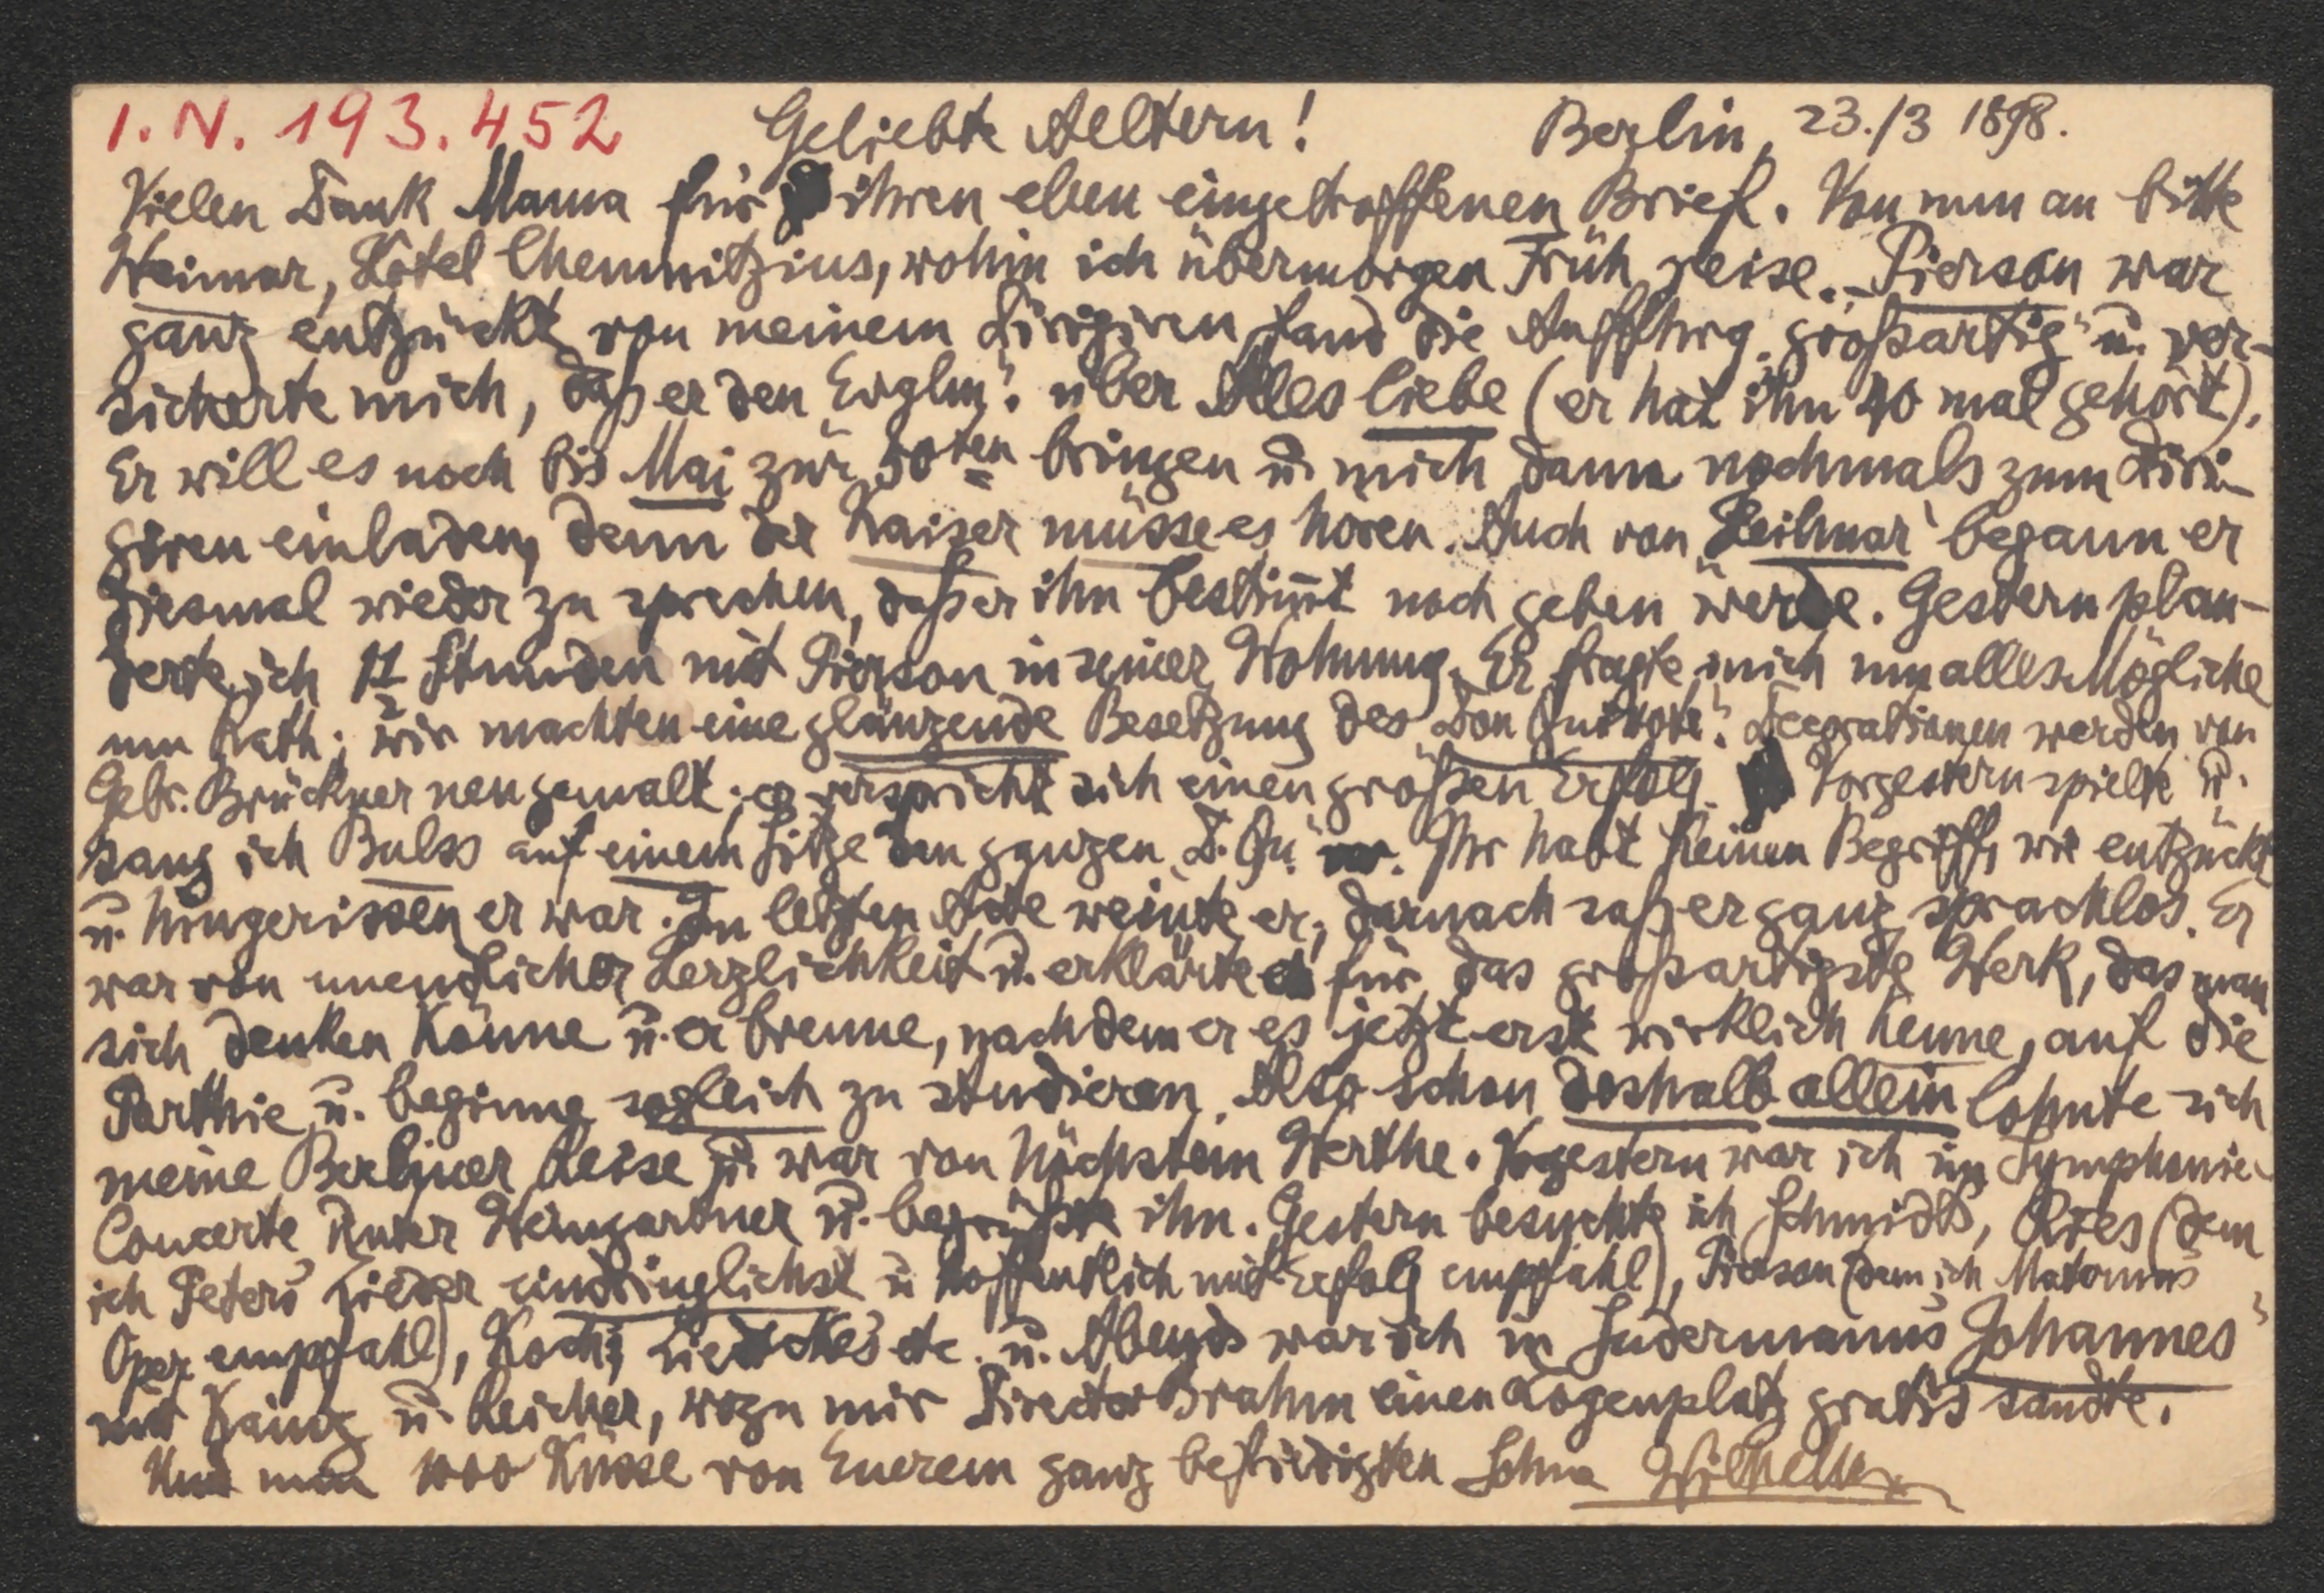 I.N. 193.452 Geliebte Aeltern! Berlin, 23./3 1898.
Vielen Dank Mama für ihren eben eingetroffenen Brief. Von nun an bitte
Weimar, Hotel Chemnitzius, wohin ich übermorgen Früh reise. – Pierson war
ganz entzückt von meinem Dirigiren, fand die Auffhrg. „großartig" u. ver-
sicherte mich, daß er den „Evglm." über Alles liebe (er hat ihn 40 mal gehört).
Er will es noch bis Mai zur 50ten bringen u. mich dann nochmals zum Diri-
giren einladen, denn der Kaiser müsse es hören. Auch von „Heilmar" begann er
diesmal wieder zu sprechen, daß er ihn bestimt noch geben werde. Gestern plau-
derte ich 1½ Stunden mit Pierson in seiner Wohnung. Er fragte mich um alles Mögliche
um Rath; wir machten eine glänzende Besetzung des „Don Quixote". Decorationen werden von
Gebr. Brückner neu gemalt; er verspricht sich einen großen Erfolg. Vorgestern spielte u.
sang ich Bulss auf einem Sitze den ganzen „D. Qu." vor. Ihr habt keinen Begriff, wie entzückt
u. hingerissen er war. Im letzten Acte weinte er; darnach saß er ganz sprachlos. Er
war von unendlicher Herzlichkeit u. erklärte es für das großartigste Werk, das man
sich denken könne u. er brenne, nachdem er es jetzt erst wirklich kenne, auf die
Parthie u. beginne sogleich zu studieren. Also schon deshalb allein lohnte sich
meine Berliner Reise u. war von höchstem Werthe. Vorgestern war ich im Symphonie-
Concerte unter Weingartner u. begrüßte ihn. Gestern besuchte ich Schmidts, Ries (dem
ich Peters' Lieder eindringlichst u hoffentlich mit Erfolg empfahl), Pierson (dem ich
Oper empfahl), Koch, etc. u. Abends war ich in Sudermanns „Johannes"
mit Kainz u. Reicher, wozu mir Director Brahm einen Logenplatz gratis sandte.
Und nun 1000 Küsse von Euerem ganz befriedigten Sohne Wilhelm